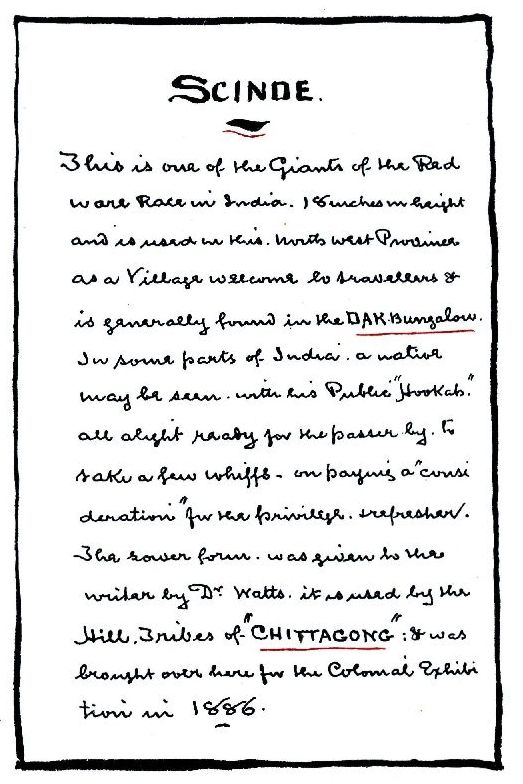 SCINDE.
This is one of the Giants of the Red
ware Race in India. 18 inches in height
and is used in this. North West Province
as a Village welcome to travellers &
is generally found in the DAK Bungalow.
In some parts of India. a native
may be seen. with his Public "Hookah."
all alight ready for the passer by. to
take a few whiffs - on paying a "consi
deration" for the privilege. & refresher.
The lower form. was given to the
writer by Dr Watts. it is used by the
Hill. Tribes of "CHITTAGONG": & was
brought over here for the Colonial Exhibi
tion in 1886.